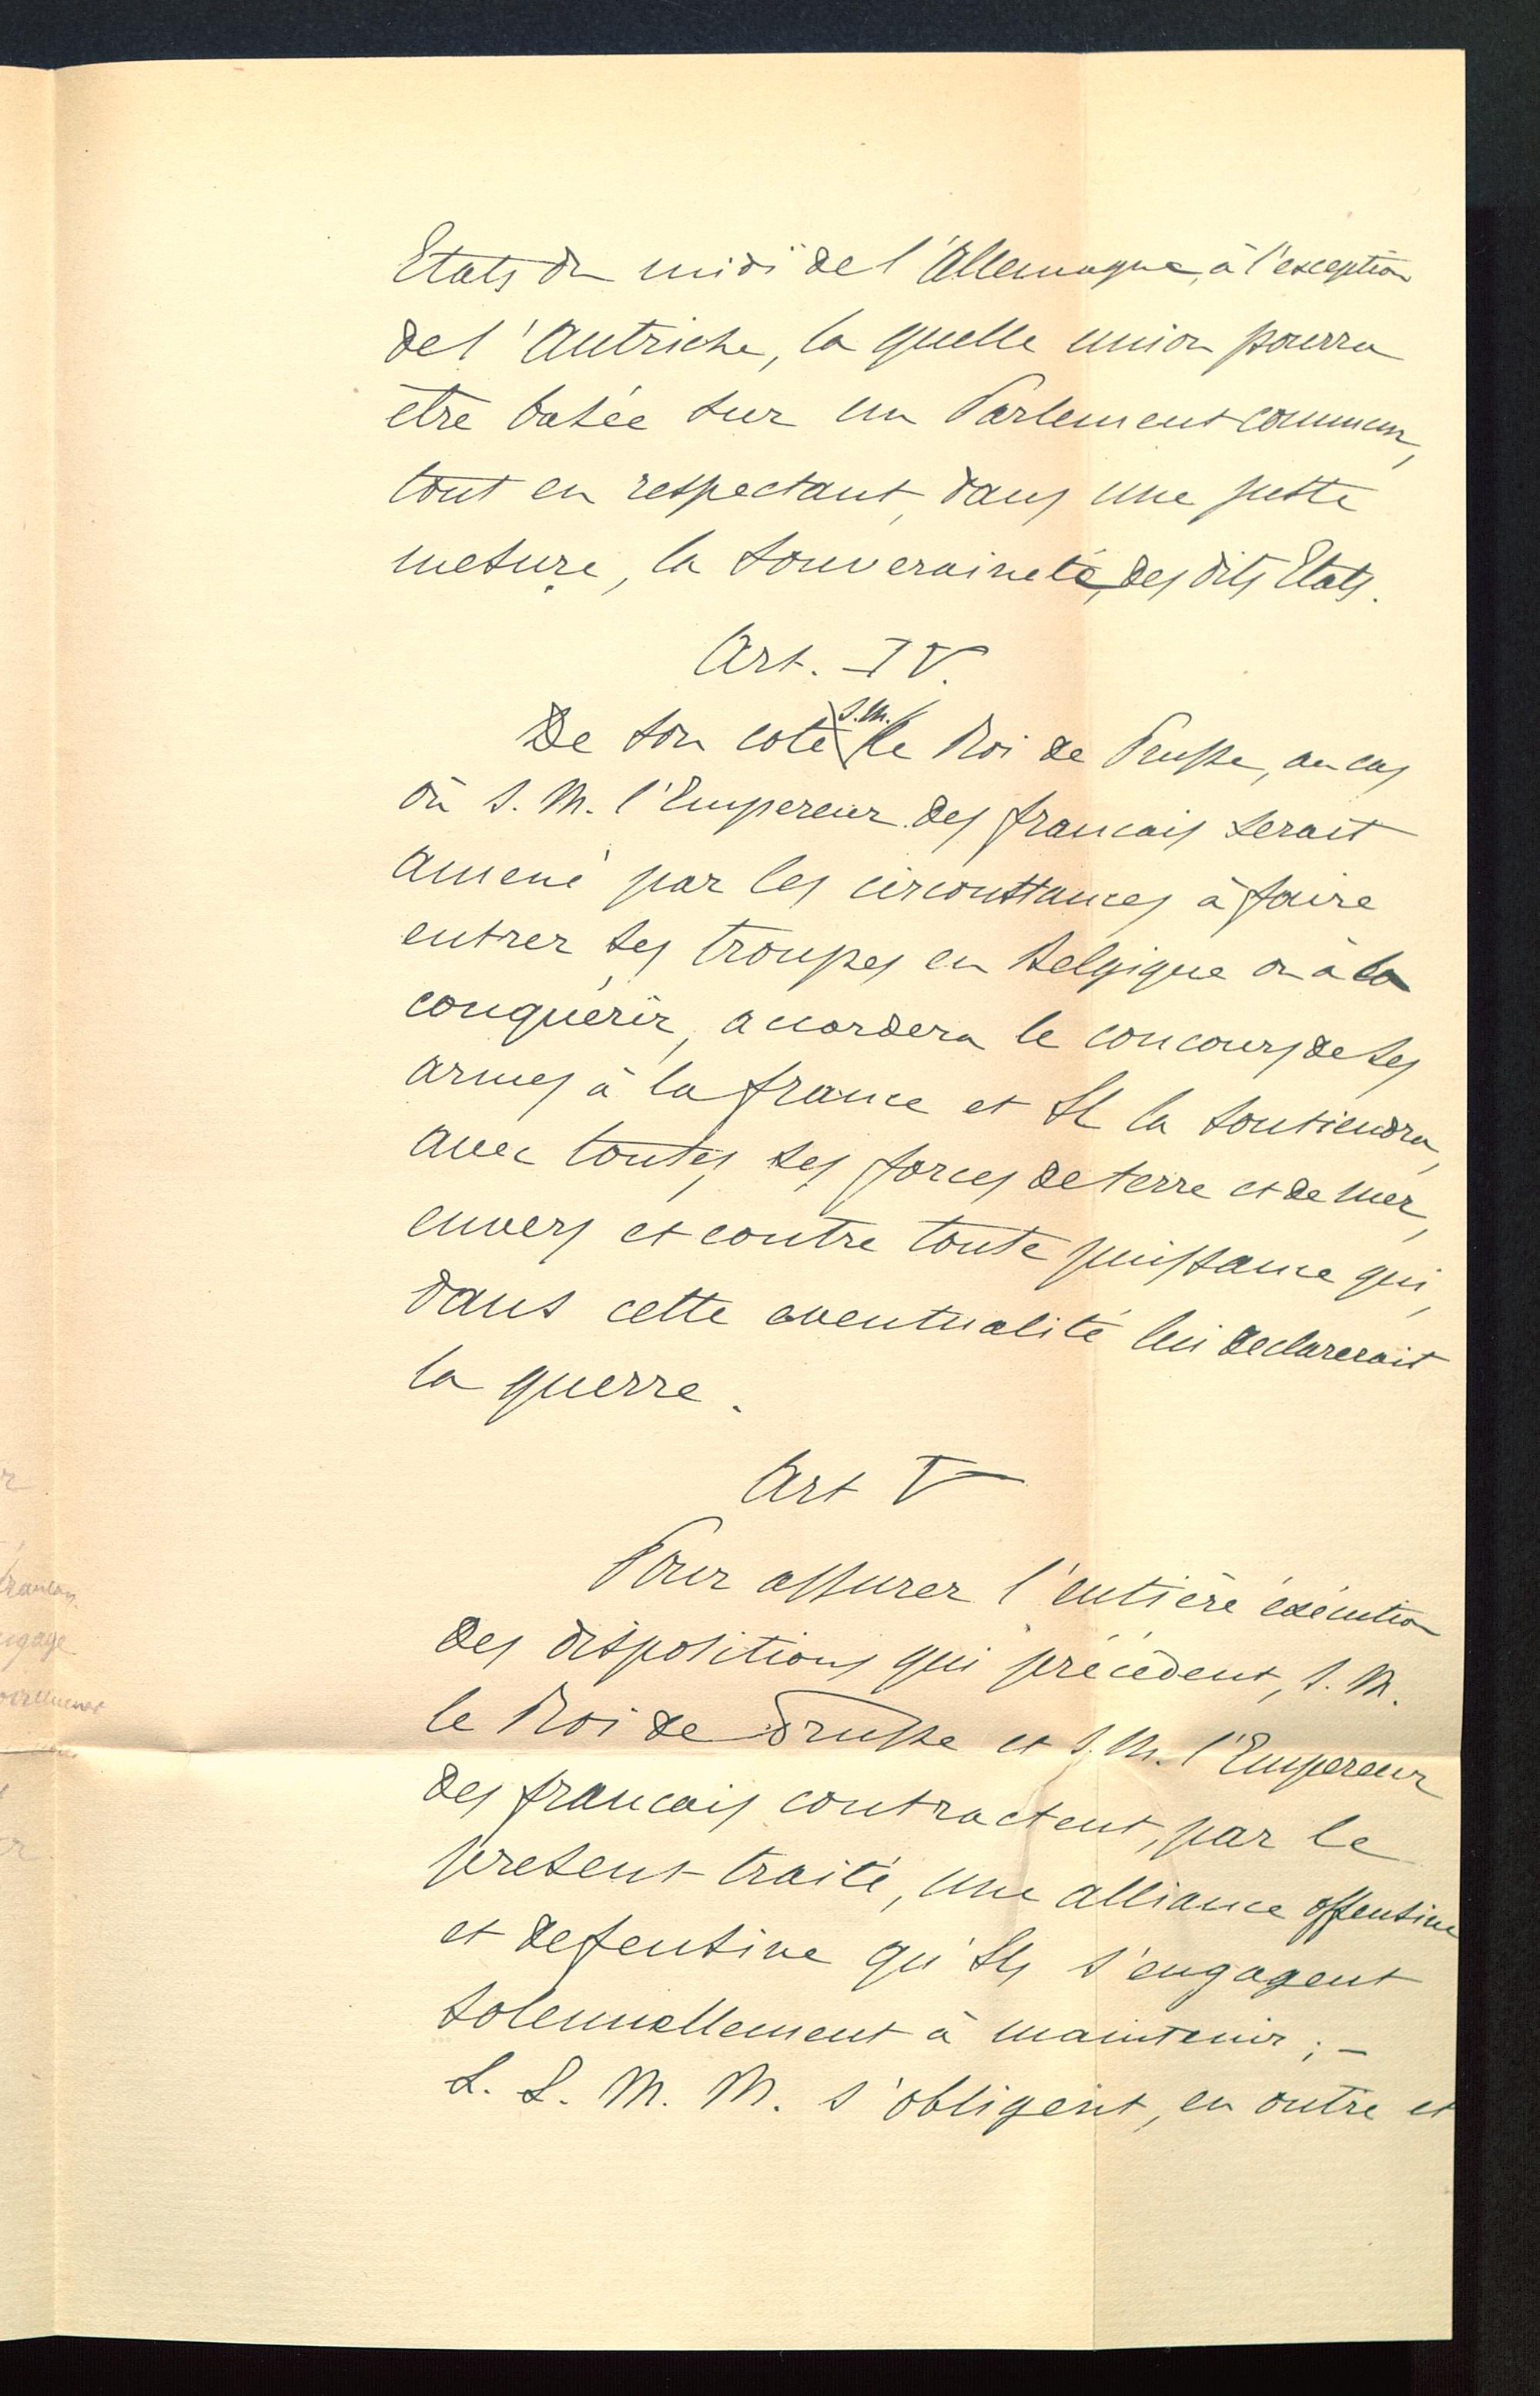 Etats du midi de l'Allemagne, à l'exception
de l'Autriche, la quelle union pourra
être basée sur un Parlement commun,
tout en respectant, dans une juste
mesure, la souveraineté, des dits Etats.
Art. IV.
De son coté S.M. le Roi de Prusse, au cas
où S. M. l'Empereur des francais serait
amené par les circonstances à faire
entrer ses troupes en Belgique ou à la
conquérir, accordera le concours de ses
armes à la france et Il la soutiendra,
avec toutes ses forces de terre et de mer,
envers et contre toute puissance qui,
dans cette eventualité lui declarerait
la guerre.
Art V
Pour assurer l'entière éxécution
des dispositions qui précèdent, S. M.
le Roi de Prusse et S. M. l'Empereur
des francais contractent, par le
present traité, une alliance offensive
et defensive qu'Ils s'engagent
solennellement à maintenir ; –
L. L. M. M. s'obligent, en outre et